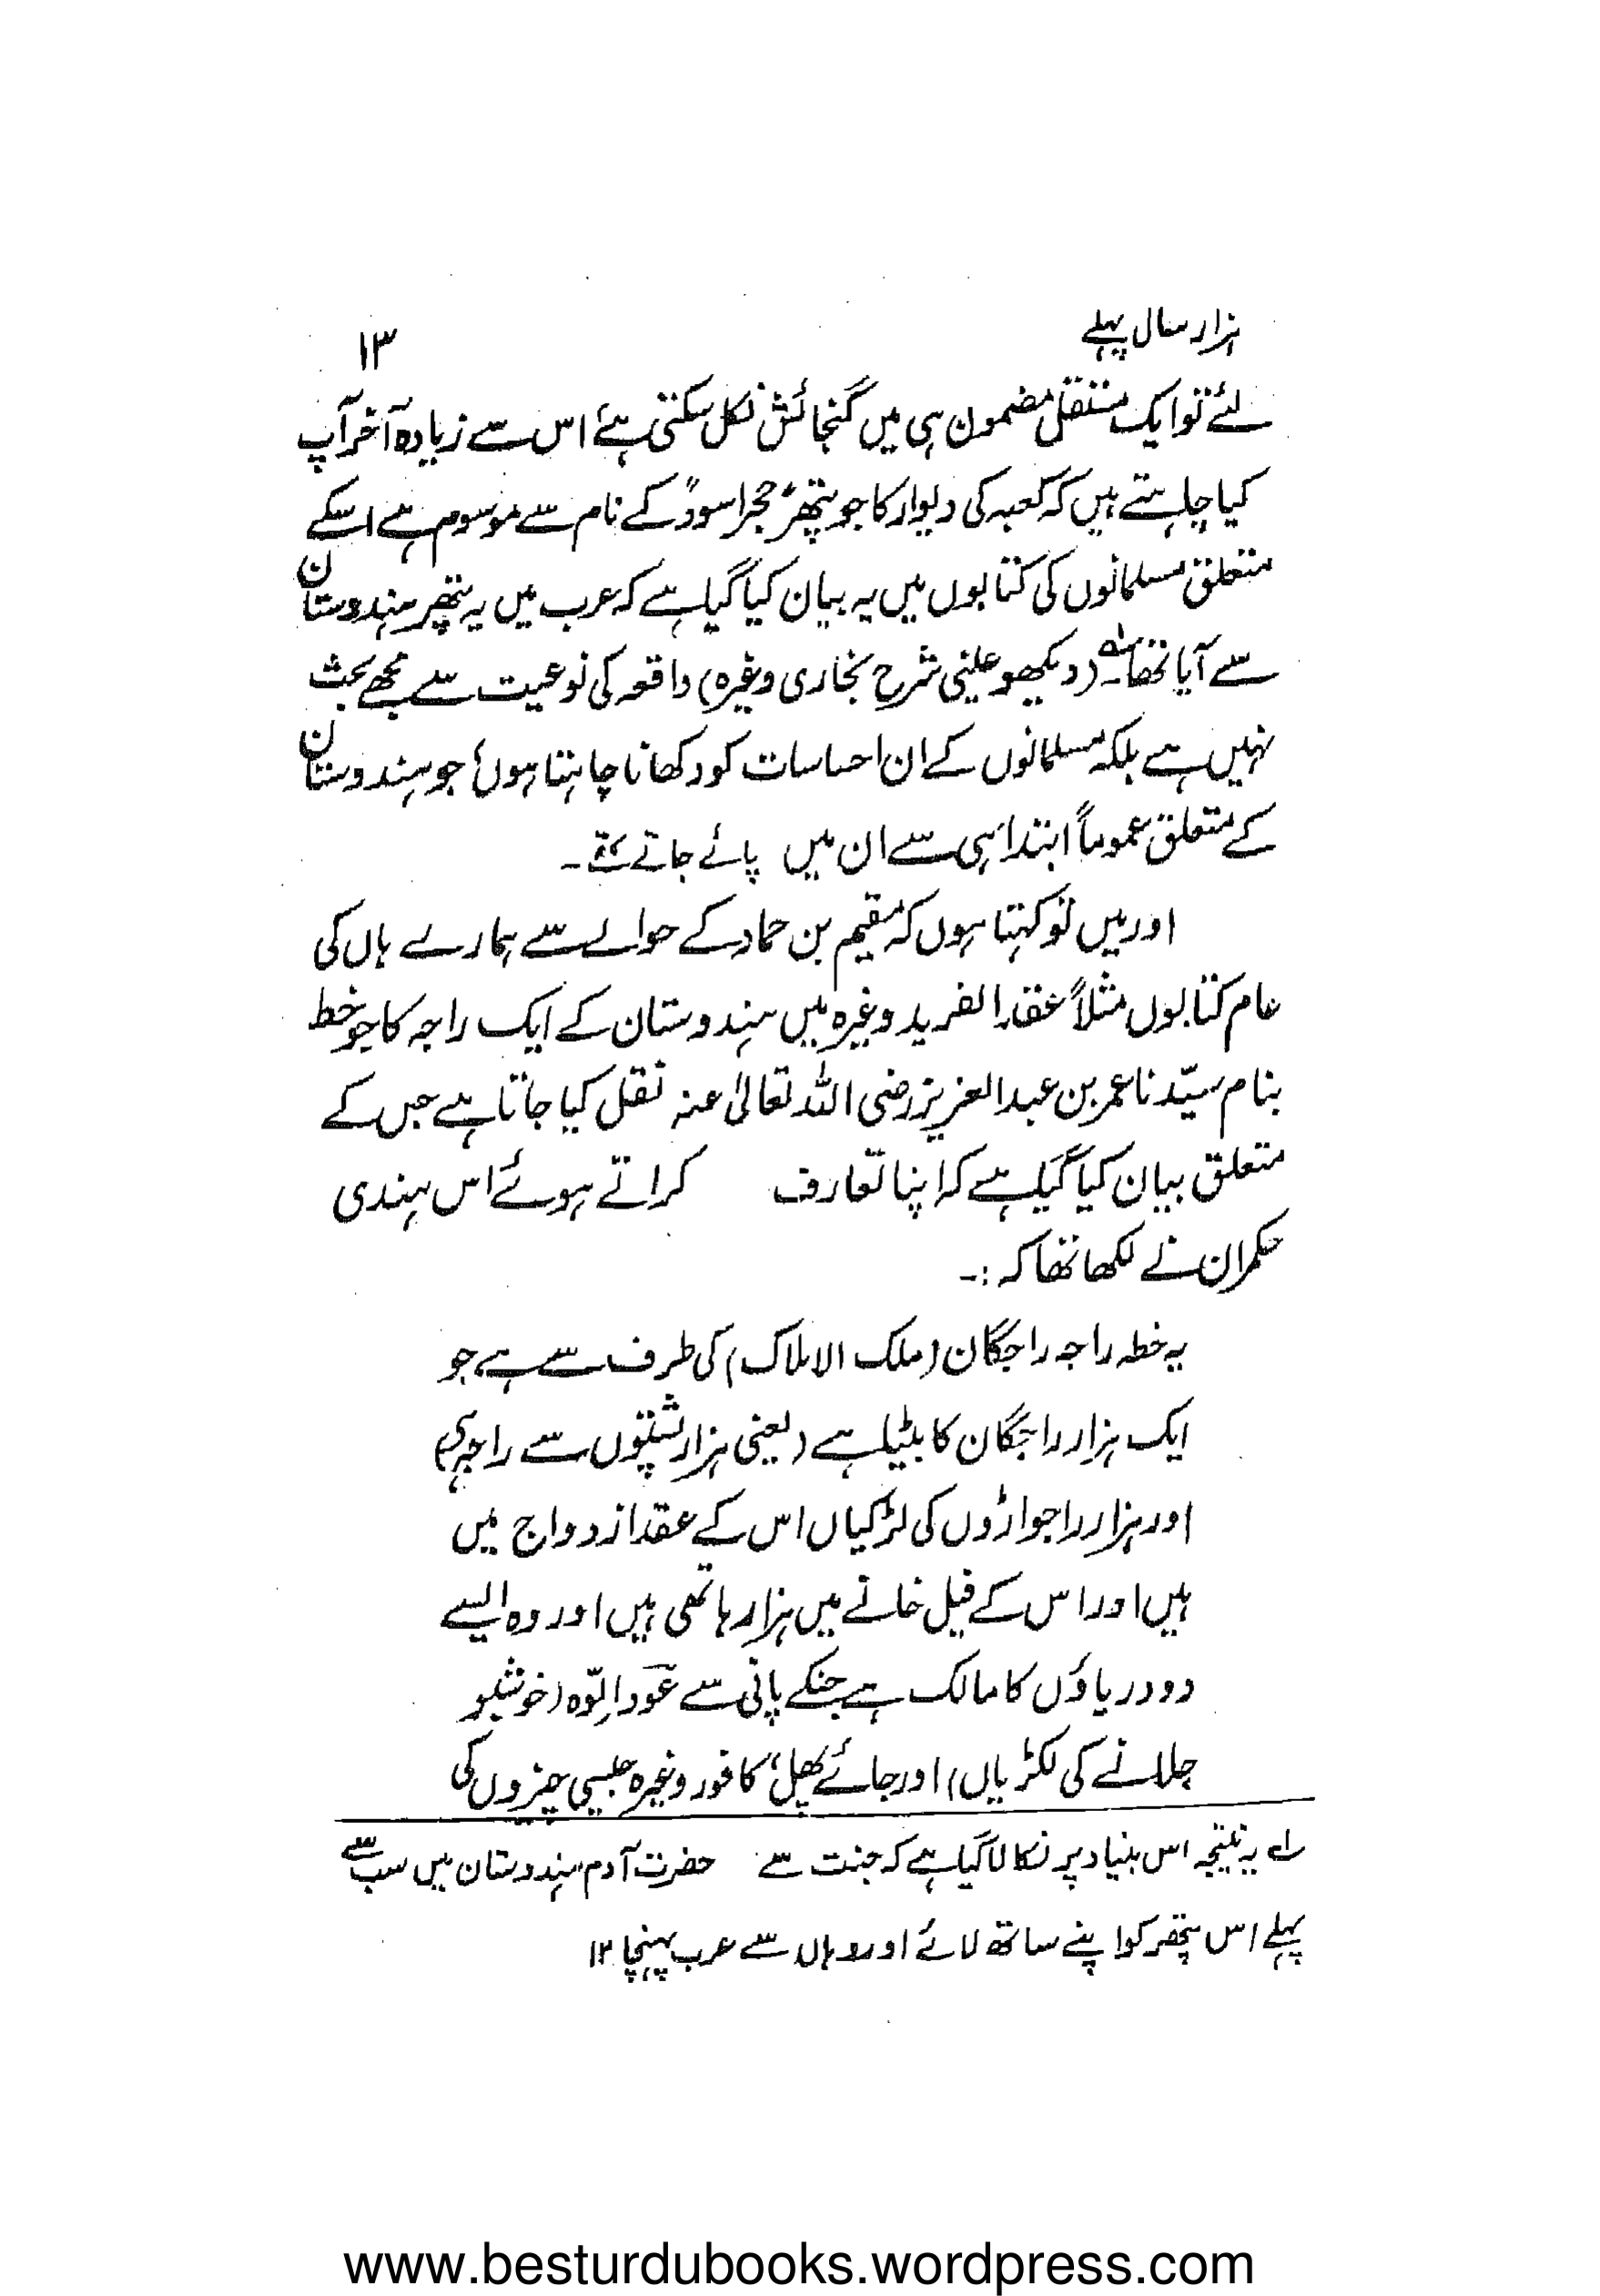 ہزار سال پہلے
۱۳
لئے تو ایک مستقل مضمون ہی میں گنجائش نکل سکتی ہے، اس سے زیادہ آخر آپ
کیا چاہتے ہیں کہ کعبہ کی دیوار کا جو پتھر "حجر اسود" کے نام سے موسوم ہے اسکے
متعلق مسلمانوں کی کتابوں میں یہ بیان کیا گیا ہے کہ عرب میں یہ پتھر ہندوستان
سے آیا تھا۔ لہ (دیکھو عینی شرح بخاری وغیرہ) واقعہ کی نوعیت سے مجھے بحث
نہیں ہے بلکہ مسلمانوں کے ان احساسات کو دکھانا چاہتا ہوں، جو ہندوستان
کے متعلق عموماً ابتداء ہی سے ان میں پائے جاتے تھے۔
اور میں تو کہتا ہوں کہ مقیم بن حماد کے حوالے سے ہمارے ہاں کی
عام کتابوں مثلاً عقد الفرید وغیرہ میں ہندوستان کے ایک راجہ کا جو خط
بنام سیّدنا عمر بن عبد العزیز رضی اللہ تعالیٰ عنہ نقل کیا جاتا ہے جس کے
متعلق بیان کیا گیا ہے کہ اپنا تعارف کراتے ہوئے اس ہندی
حکمران نے لکھا تھا کہ :-
یہ خط راجہ راجگان (ملک الاملاک) کی طرف سے ہے جو
ایک ہزار راجگان کا بیٹا ہے (یعنی ہزار پشتوں سے راجہ ہی)
اور ہزار راجواڑوں کی لڑکیاں اس کے عقد ازدواج میں
ہیں اور اس کے فیل خانے میں ہزار ہاتھی ہیں اور وہ ایسے
دو دریاؤں کا مالک ہے جنکے پانی سے عود الوّہ (خوشبو
جلانے کی لکڑیاں) اور جائے پھل، کافور وغیرہ جیسی چیزوں کی
لہ یہ نتیجہ اس بنیاد پر نکالا گیا ہے کہ جنت سے حضرت آدم ہندوستان میں سب سے
پہلے اس پتھر کو اپنے ساتھ لائے اور وہاں سے عرب پہنچا ۱۲
www.besturdubooks.wordpress.com